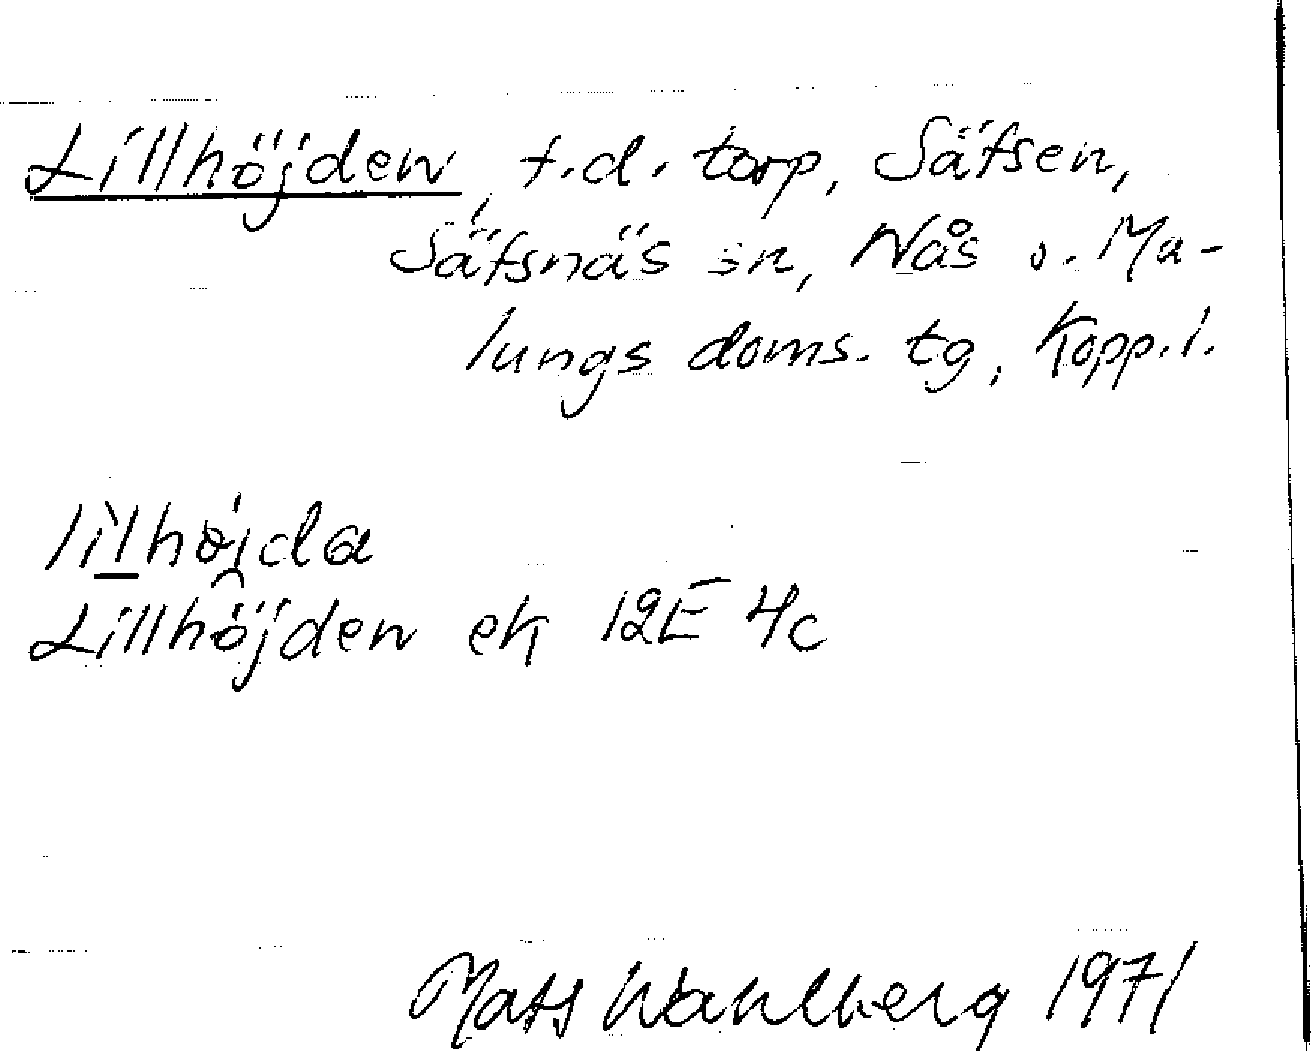 Lillhöjden, f.d. torp, Säfsen,
Säfsnäs sn, Nås o. Ma-
lungs doms. tg, Kopp. l.
Lillhöjden ek 12E 4c
Mats Wahlberg 1971